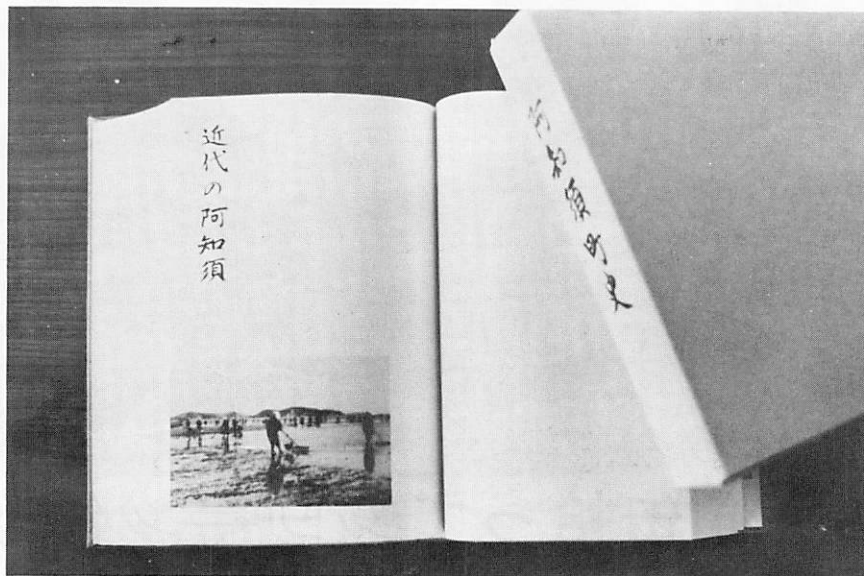 近代の阿知須
阿知須町史